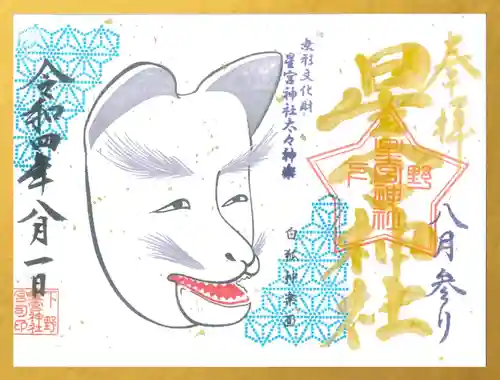 奉拝
星宮神社
下野
星宮神社
八月参り
無形文化財
星宮神社太々神楽
白狐神楽面
令和四年八月一日
下野
星宮神社
宮司印